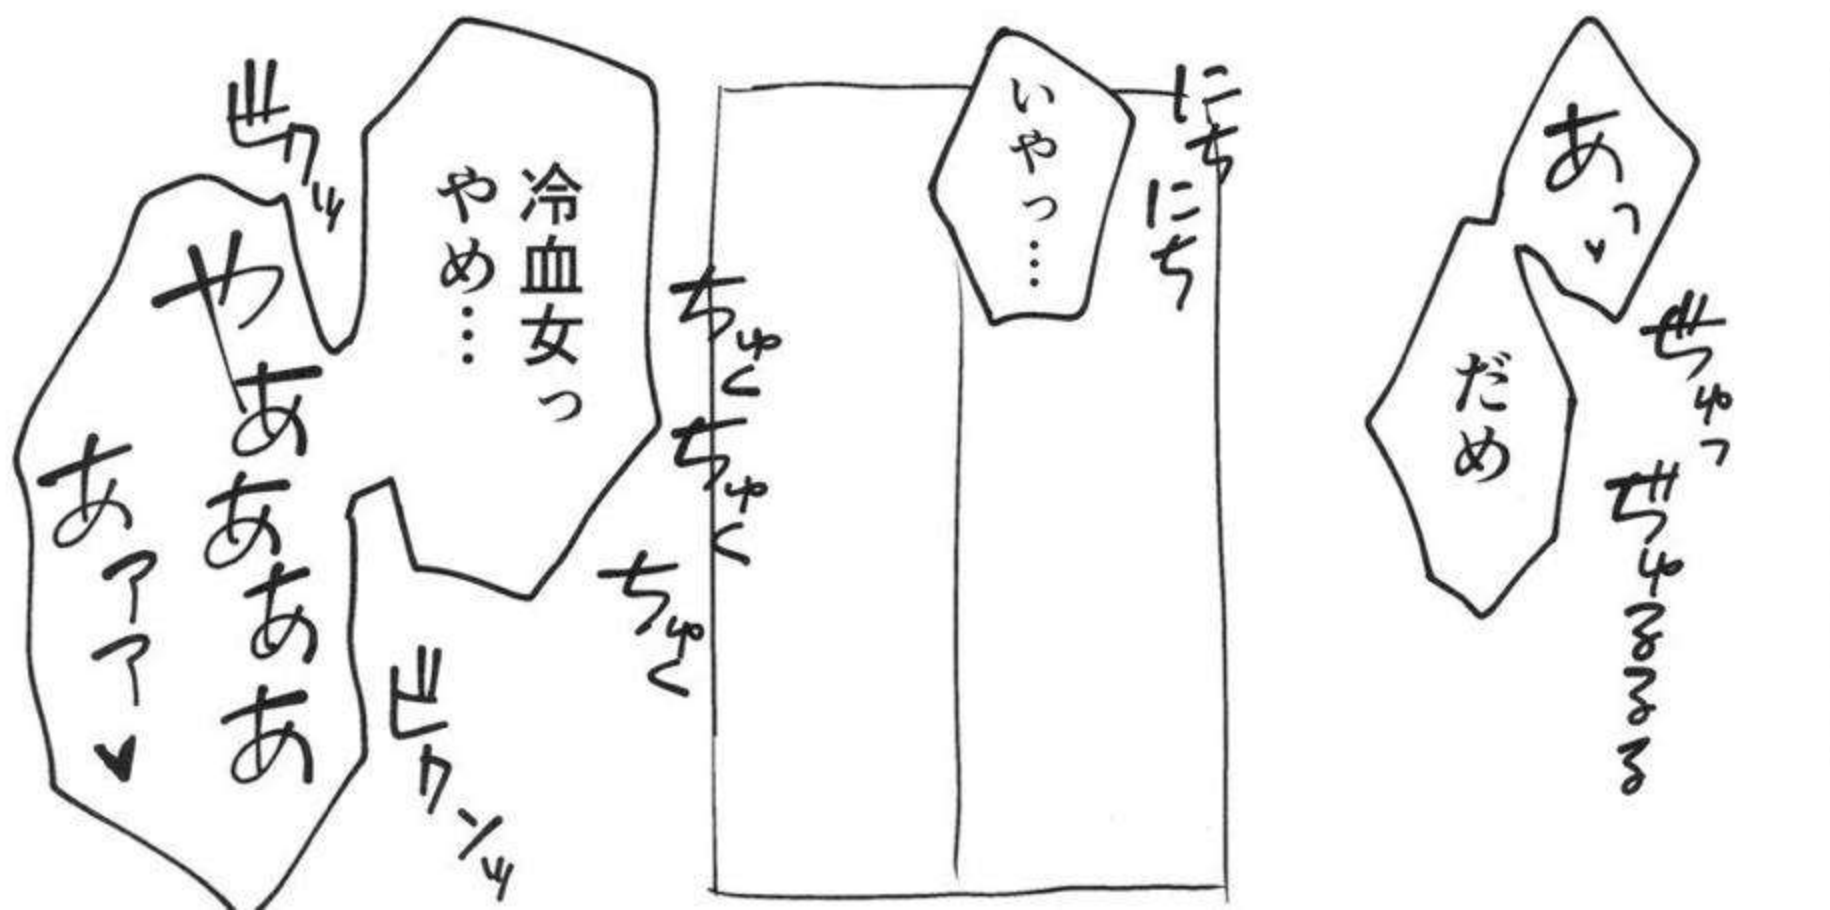 あっ♥
だめ
ぢゅっ
ぢゅるるる
にち
にち
いやっ…
ちゅく
ちゅく
ちゅく
冷血女っ
やめ…
ビクッ
やああああ
あァァ♥
ビクンッ